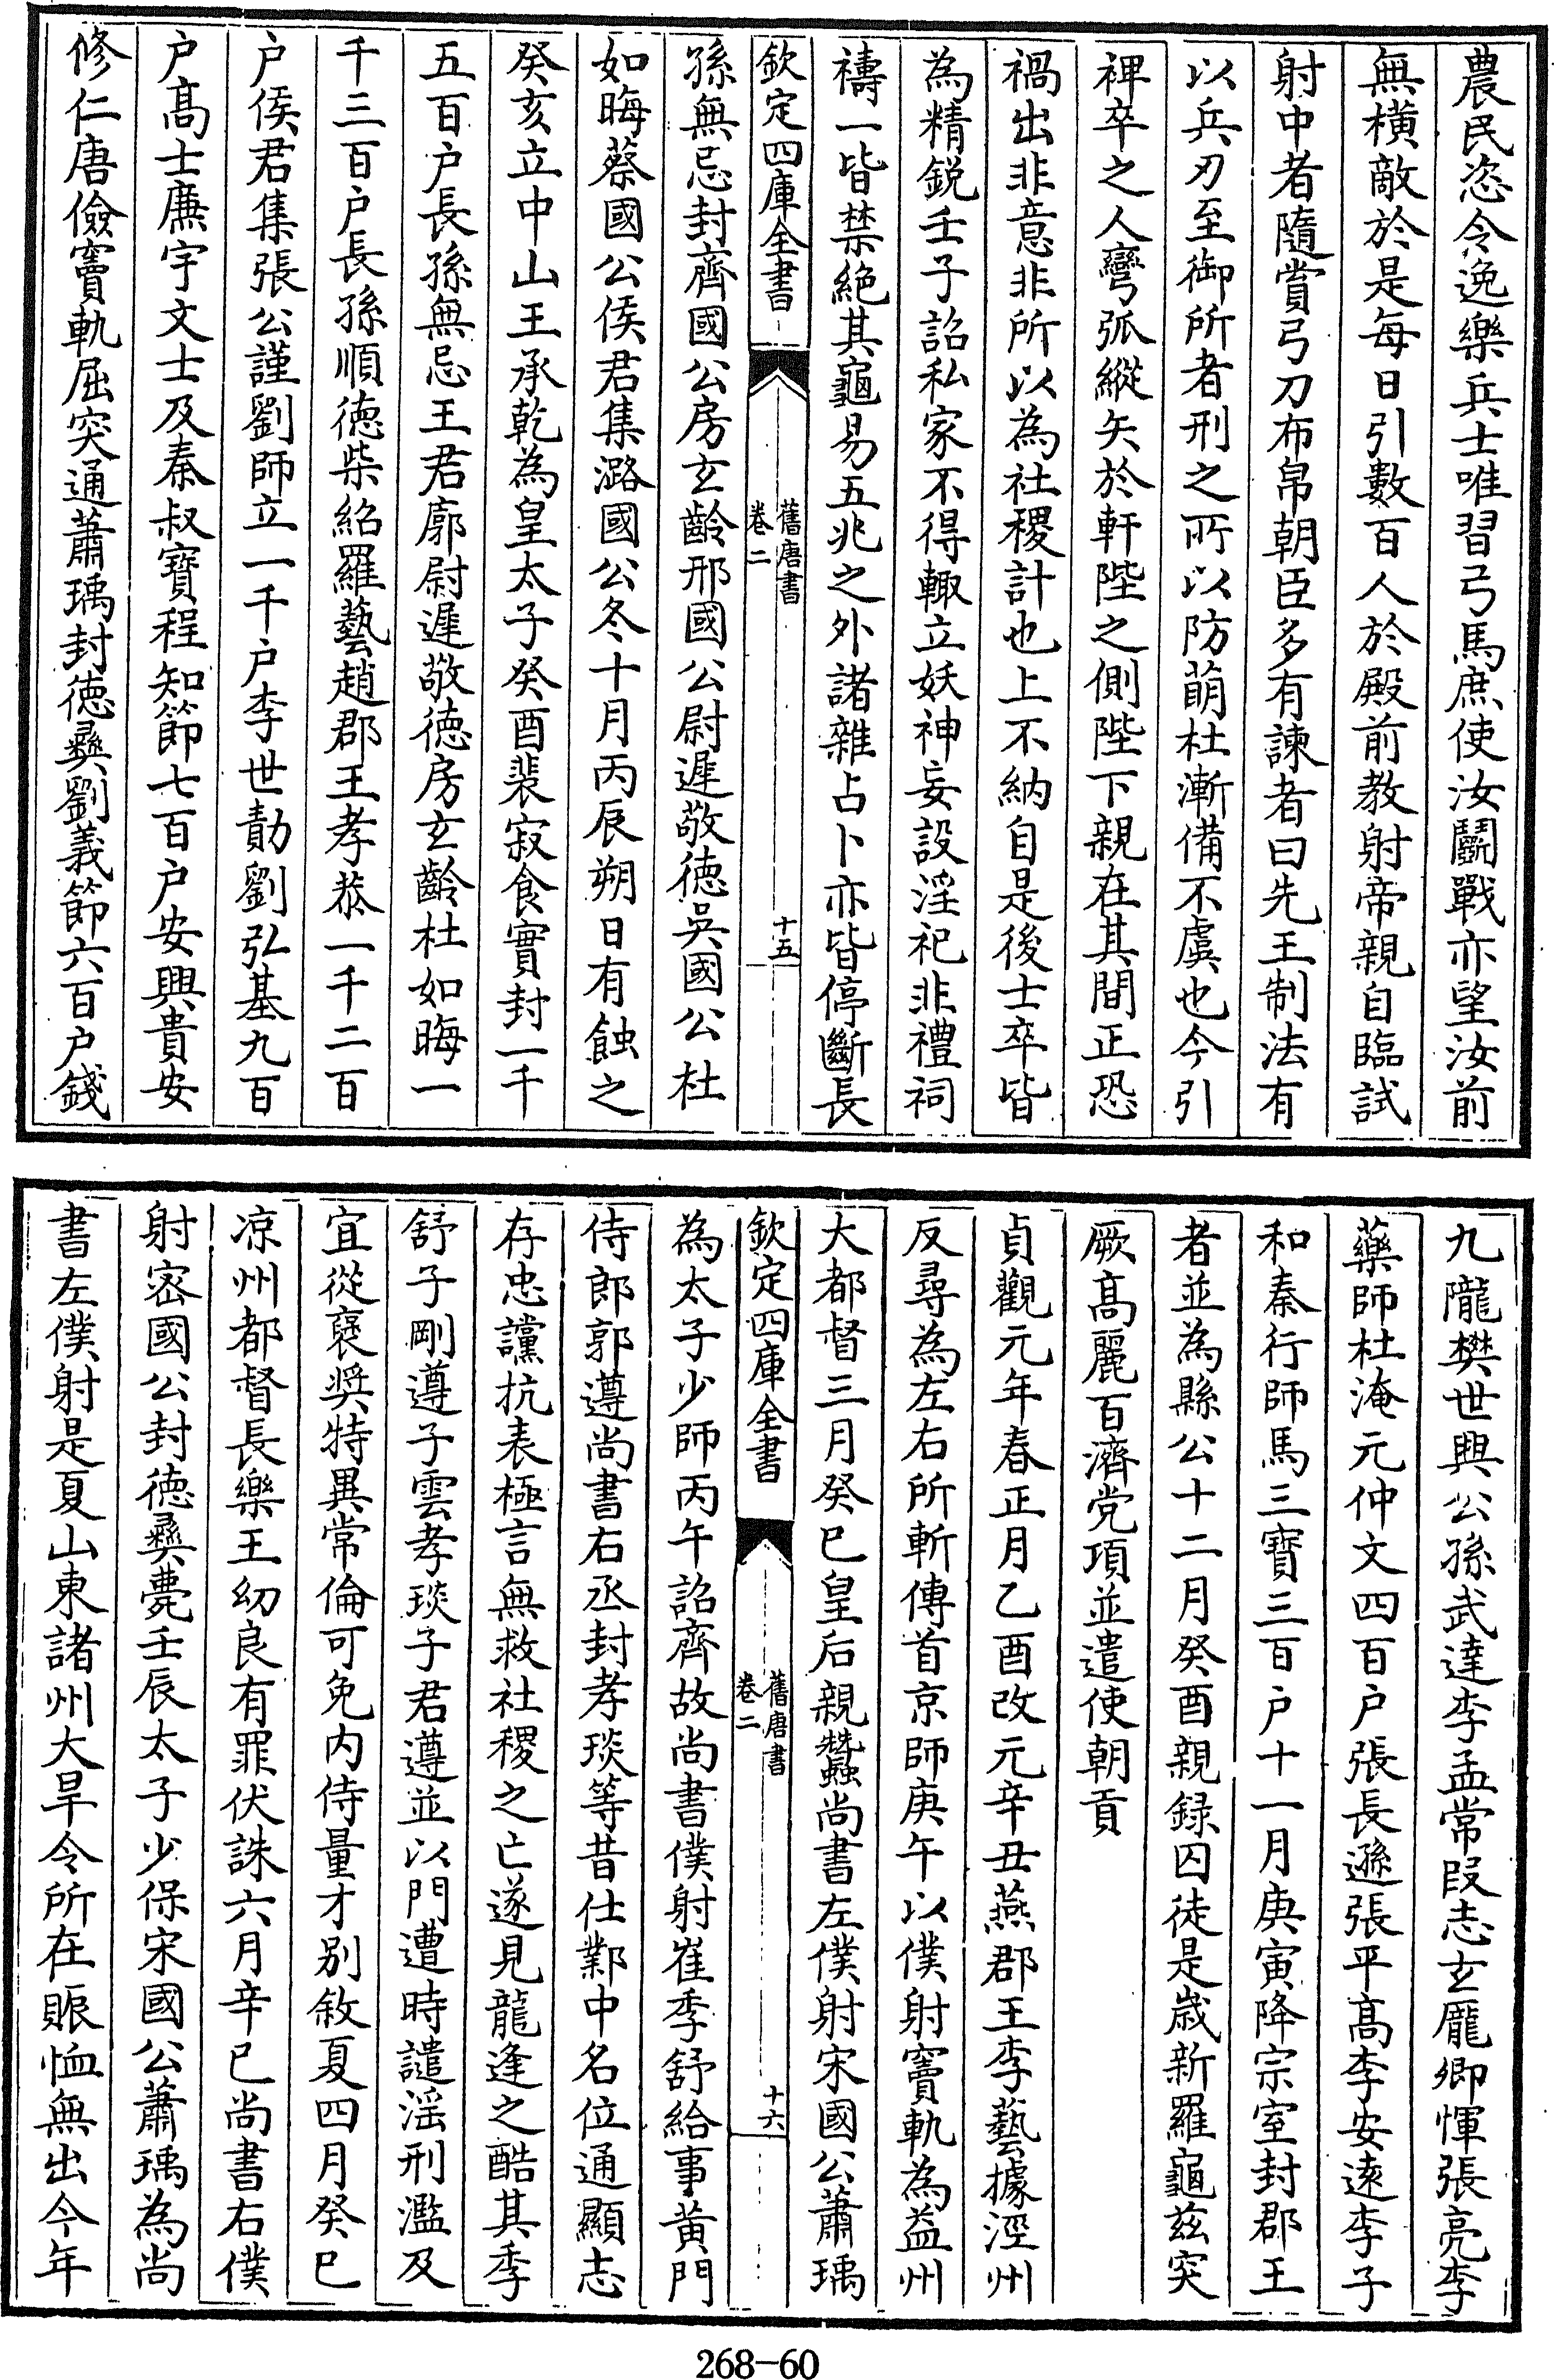 農民恣令逸樂兵士唯習弓馬庶使汝鬭戰亦望汝前
無橫敵於是每日引數百人於殿前教射帝親自臨試
射中者隨賞弓刀布帛朝臣多有諫者曰先王制法有
以兵刃至御所者刑之所以防萌杜漸備不虞也今引
裨卒之人彎弧縱矢於軒陛之側陛下親在其間正恐
禍出非意非所以為社稷計也上不納自是後士卒皆
為精鋭壬子詔私家不得輙立妖神妄設淫祀非禮祠
禱一皆禁絶其龜易五兆之外諸雜占卜亦皆停斷長
欽定四庫全書
舊唐書
卷二
十五
孫無忌封齊國公房玄齡邢國公尉遲敬德吳國公杜
如晦蔡國公侯君集潞國公冬十月丙辰朔日有蝕之
癸亥立中山王承乾為皇太子癸酉裴寂食實封一千
五百户長孫無忌王君廓尉遲敬德房玄齡杜如晦一
千三百户長孫順德柴紹羅藝趙郡王孝恭一千二百
户侯君集張公謹劉師立一千户李世勣劉弘基九百
户高士廉宇文士及秦叔寶程知節七百户安興貴安
修仁唐儉竇軌屈突通蕭瑀封德彝劉義節六百户錢
九隴樊世興公孫武達李孟常段志玄龐卿惲張亮李
藥師杜淹元仲文四百户張長遜張平高李安遠李子
和秦行師馬三寶三百户十一月庚寅降宗室封郡王
者並為縣公十二月癸酉親録囚徒是歲新羅龜茲突
厥高麗百濟党項並遣使朝貢
貞觀元年春正月乙酉改元辛丑燕郡王李藝據涇州
反尋為左右所斬傳首京師庚午以僕射竇軌為益州
大都督三月癸巳皇后親蠶尚書左僕射宋國公蕭瑀
欽定四庫全書
舊唐書
卷二
十六
為太子少師丙午詔齊故尚書僕射崔季舒給事黄門
侍郎郭遵尚書右丞封孝琰等昔仕鄴中名位通顯志
存忠讜抗表極言無救社稷之亡遂見龍逢之酷其季
舒子剛遵子雲孝琰子君遵並以門遭時譴淫刑濫及
宜從褒奬特異常倫可免内侍量才别敘夏四月癸巳
凉州都督長樂王幼良有罪伏誅六月辛巳尚書右僕
射密國公封德彝薨壬辰太子少保宋國公蕭瑀為尚
書左僕射是夏山東諸州大旱令所在賑恤無出今年
268-60